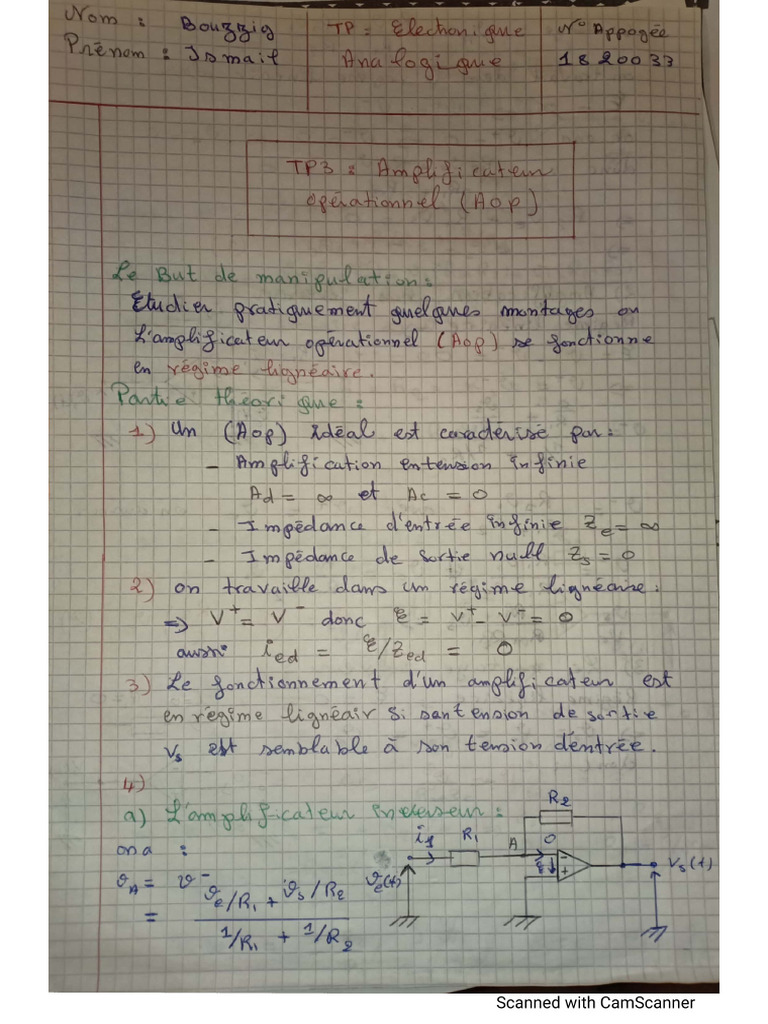 Nom : Bouzzig
Prénom : Ismail
TP : Electronique
Analogique
N° Appogée
1820033
TP3 : Amplificateur
opérationnel (Aop)
Le But de manipulation :
Etudier pratiquement quelques montages ou
L'amplificateur opérationnel (Aop) se fonctionne
en régime lignéaire.
Partie théorique :
1) Un (Aop) idéal est caractérisé par :
- Amplification entension infinie
Ad = ∞ et Ac = 0
- Impédance d'entrée infinie Ze = ∞
- Impédance de sortie null Zs = 0
2) on travaille dans un régime lignéaire :
⇒ V+ = V- donc ε = V+ - V- = 0
aussi ied = ε/Zed = 0
3) Le fonctionnement d'un amplificateur est
en régime lignéair si santension de sortie
Vs est semblable à son tension d'entrée.
4)
a) L'amplificateur inverseur :
ona :
ϑA = ϑ-
= ϑe/R1 + ϑs/R2
1/R1 + 1/R2
R2
i1 R1 A 0
ε - +
ϑe(t) Vs(t)
Scanned with CamScanner